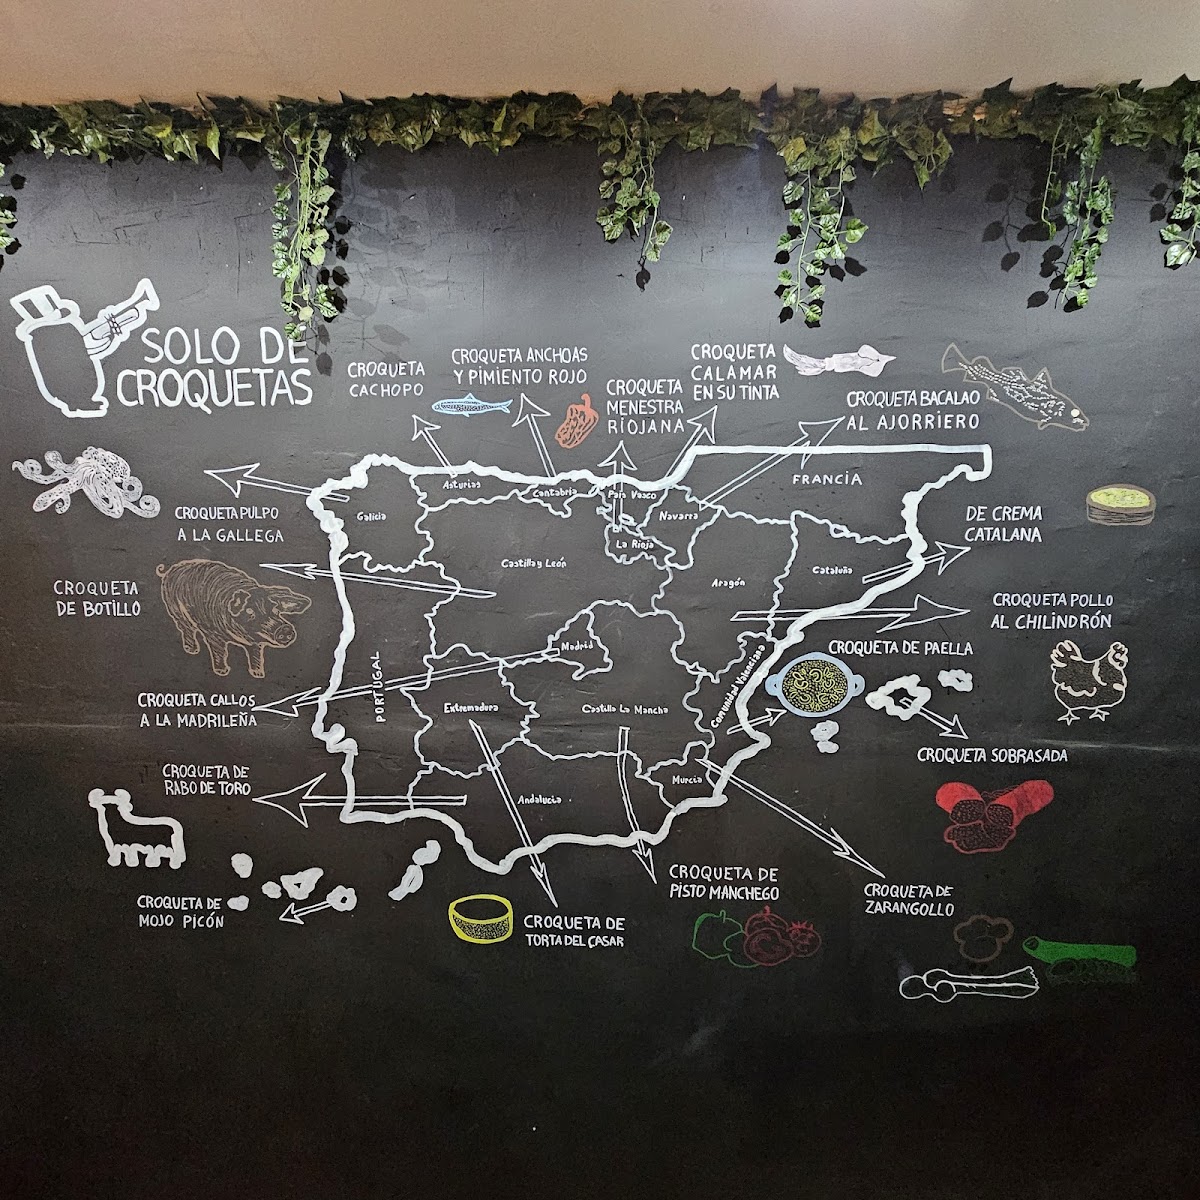 SOLO DE
CROQUETAS
CROQUETA
CACHOPO
CROQUETA ANCHOAS
Y PIMIENTO ROJO
CROQUETA
MENESTRA
RIOJANA
CROQUETA
CALAMAR
EN SU TINTA
CROQUETA BACALAO
AL AJORRIERO
FRANCIA
CROQUETA PULPO
A LA GALLEGA
Galicia
Asturias
Cantabria
País Vasco
Navarra
La Rioja
DE CREMA
CATALANA
CROQUETA
DE BOTILLO
Castilla y León
Aragón
Cataluña
CROQUETA POLLO
AL CHILINDRÓN
Madrid
CROQUETA DE PAELLA
PORTUGAL
CROQUETA CALLOS
A LA MADRILEÑA
Extremadura
Castilla La Mancha
Comunidad Valenciana
CROQUETA SOBRASADA
CROQUETA DE
RABO DE TORO
Andalucia
Murcia
CROQUETA DE
MOJO PICÓN
CROQUETA DE
TORTA DEL CASAR
CROQUETA DE
PISTO MANCHEGO
CROQUETA DE
ZARANGOLLO